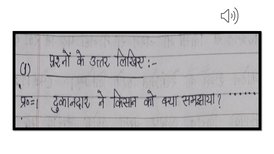 (1) प्रश्नों के उत्तर लिखिए :-
प्र०=1 दुकानदार ने किसान को क्या समझाया? ......